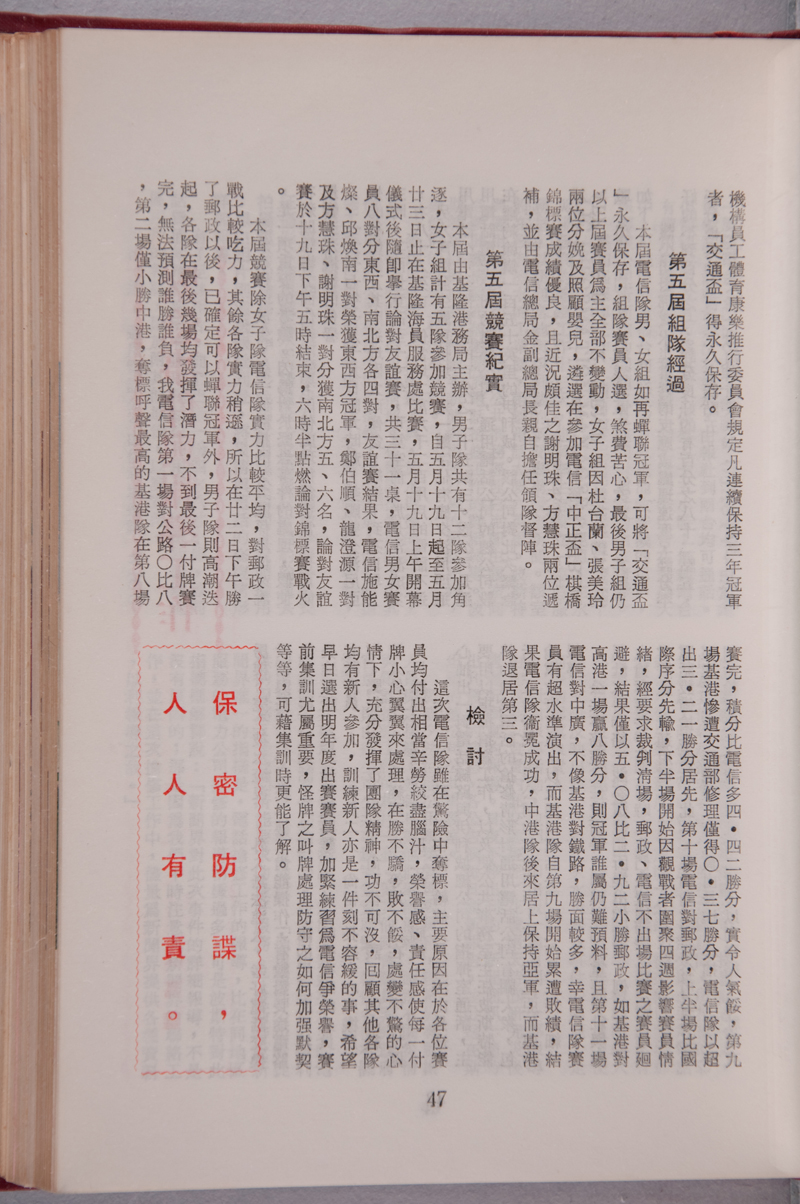 機構員工體育康樂推行委員會規定凡連續保持三年冠軍
者，「交通盃」得永久保存。
第五屆組隊經過
本屆電信隊男、女組如再蟬聯冠軍，可將「交通盃
」永久保存，組隊賽員人選，煞費苦心，最後男子組仍
以上屆賽員爲主全部不變動，女子組因杜台蘭、張美玲
兩位分娩及照顧嬰兒，遴選在參加電信「中正盃」棋橋
錦標賽成績優良，且近況頗佳之謝明珠、方慧珠兩位遞
補，並由電信總局金副總局長親自擔任領隊督陣。
第五屆競賽紀實
本屆由基隆港務局主辦，男子隊共有十二隊參加角
逐，女子組計有五隊參加競賽，自五月十九日起至五月
廿三日止在基隆海員服務處比賽，五月十九日上午開幕
儀式後隨即舉行論對友誼賽，共三十一桌，電信男女賽
員八對分東西、南北方各四對，友誼賽結果，電信施能
燦、邱煥南一對榮獲東西方冠軍，鄭伯順、龍澄源一對
及方慧珠、謝明珠一對分獲南北方五、六名，論對友誼
賽於十九日下午五時結束，六時半點燃論對錦標賽戰火
。
本屆競賽除女子隊電信隊實力比較平均，對郵政一
戰比較吃力，其餘各隊實力稍遜，所以在廿二日下午勝
了郵政以後，已確定可以蟬聯冠軍外，男子隊則高潮迭
起，各隊在最後幾場均發揮了潛力，不到最後一付牌賽
完，無法預測誰勝誰負，我電信隊第一場對公路〇比八
，第二場僅小勝中港，奪標呼聲最高的基港隊在第八場
賽完，積分比電信多四•四二勝分，實令人氣餒，第九
場基港慘遭交通部修理僅得〇•三七勝分，電信隊以超
出三•二一勝分居先，第十場電信對郵政，上半場比國
際序分先輸，下半場開始因觀戰者圍聚四週影響賽員情
緒，經要求裁判清場，郵政、電信不出場比賽之賽員廻
避，結果僅以五•〇八比二•九二小勝郵政，如基港對
高港一場贏八勝分，則冠軍誰屬仍難預料，且第十一場
電信對中廣，不像基港對鐵路，勝面較多，幸電信隊賽
員有超水準演出，而基港隊自第九場開始累遭敗績，結
果電信隊衞冕成功，中港隊後來居上保持亞軍，而基港
隊退居第三。
檢討
這次電信隊雖在驚險中奪標，主要原因在於各位賽
員均付出相當辛勞絞盡腦汁，榮譽感、責任感使每一付
牌小心翼翼來處理，在勝不驕，敗不餒，處變不驚的心
情下，充分發揮了團隊精神，功不可沒，回顧其他各隊
均有新人參加，訓練新人亦是一件刻不容緩的事，希望
早日選出明年度出賽賽員，加緊練習爲電信爭榮譽，賽
前集訓尤屬重要，怪牌之叫牌處理防守之如何加强默契
等等，可藉集訓時更能了解。
保密防諜，
人人有責。
47